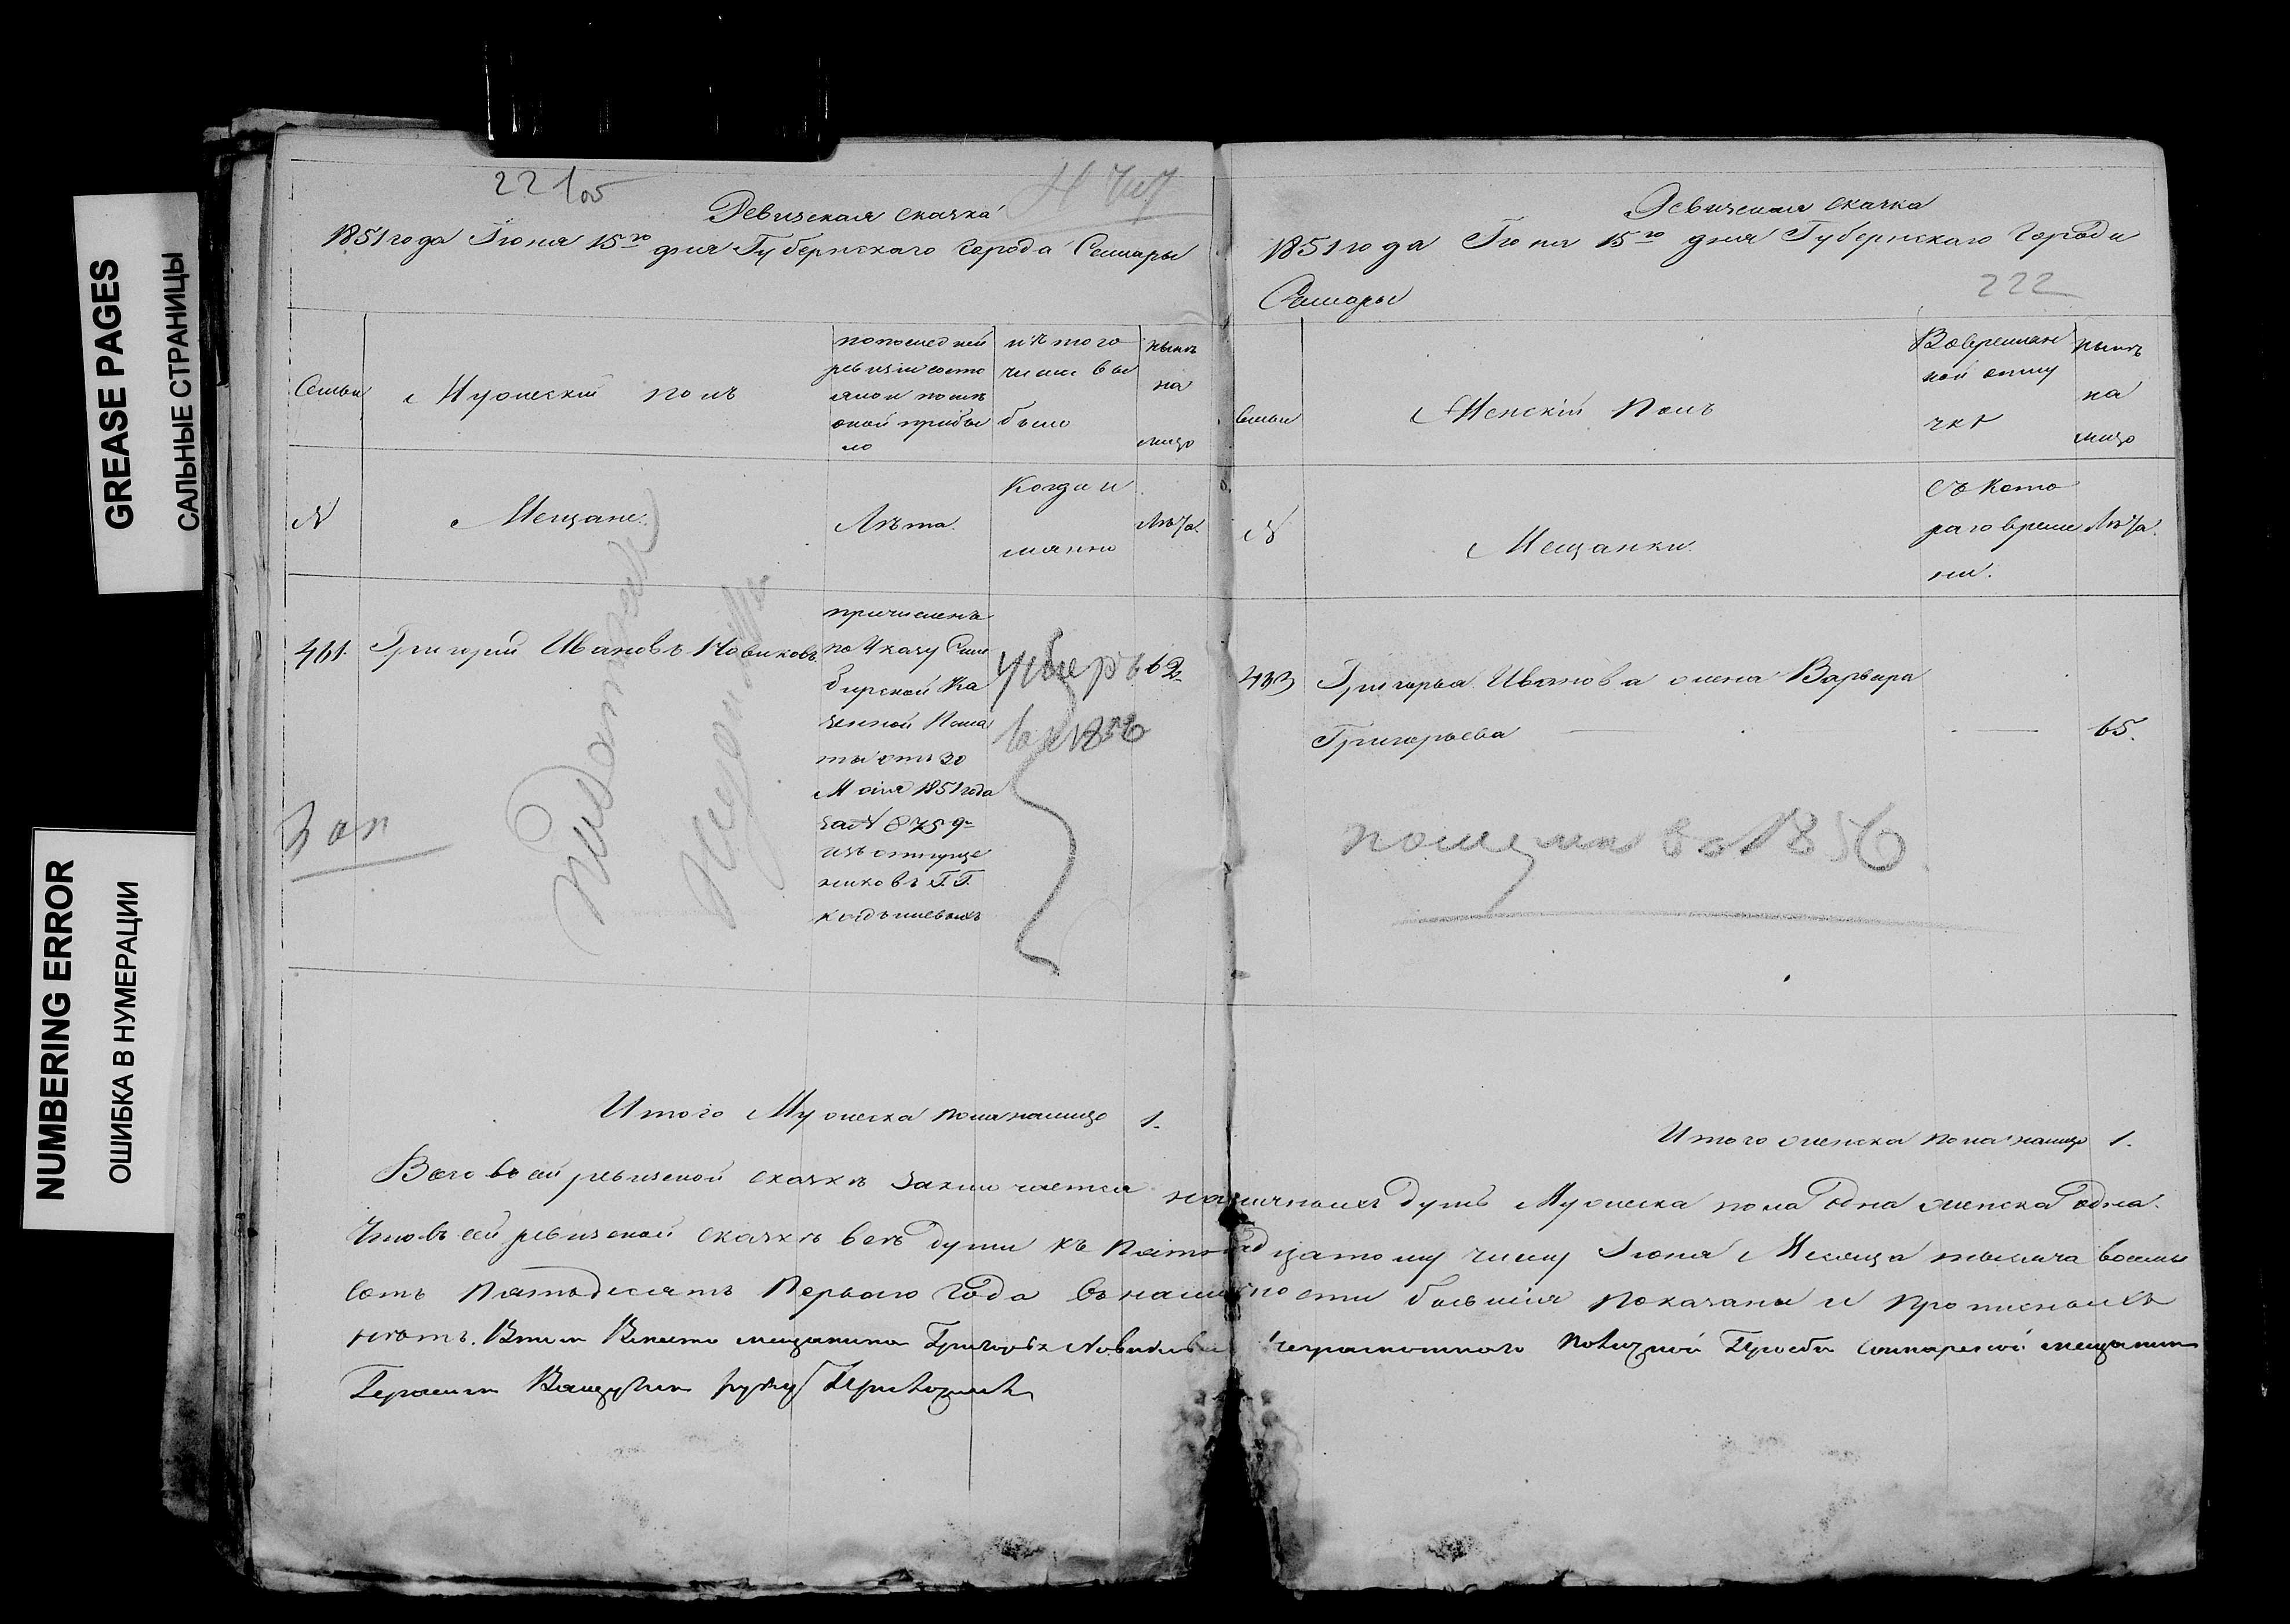 GREASE PAGES
САЛЬНЫЕ СТРАНИЦЫ
NUMBERING ERROR
ОШИБКА В НУМЕРАЦИИ
221об
Ревизская сказка
1851 года Іюня 15го дня Губернскаго города Самары
Семьи
Мужескій полъ
по последней ревизіи состояло и после оной прибыло
изъ того числа выбыло
ныне на лицо
№
Мещане.
Лѣта.
Когда и
Лѣта.
461. Григорий Ивановъ Новиковъ
причисленъ
по Указу Сим
бирской Ка
зенной Пала
ты отъ 30
Маія 1851 года
за № 8759
изъ отпуще
никовъ Г.Г.
умеръ
в 1856
62
Итого Мужеска пола налицо 1.
Ревизская сказка
1851 года Іюня 15го дня Губернскаго Города
Самары
222
Семьи
Женскій Полъ
Во временной отлучке
ныне на лицо
№
Мещанки.
Съ кото
раго време
ни.
Лѣта.
Григорья Иванова жена Варвара
Григорьева 65.
в 1856
Итого женска пола налицо 1.
Всего въ сей ревизской сказкѣ заключается наличныхъ душъ Мужеска пола одна женска одна.
Что въ сей ревизской сказкѣ всѣ души къ пятнадцатому числу Іюня Месяца тысяча восемь
сотъ пятьдесятъ перваго года въ наличности бывшія показаны и прописныхъ
нетъ. мещанина Григорья Новикова неграмотнаго по личной просьбе самарской мещанин
Герасим руку приложил